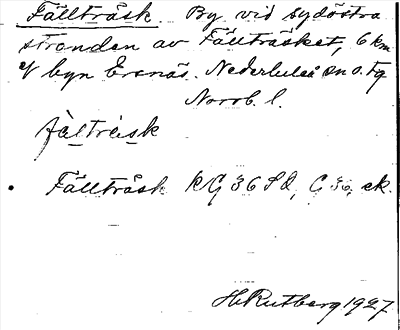 Fällträsk. By vid sydöstra
stranden av Fällträsket, 6 km
byn Ersnäs. Nederluleå sn o. tg
Norrb. l.
fàltrèisk
Fällträsk KG 36 Sd, G 36, ek.
H. Rutberg 1927